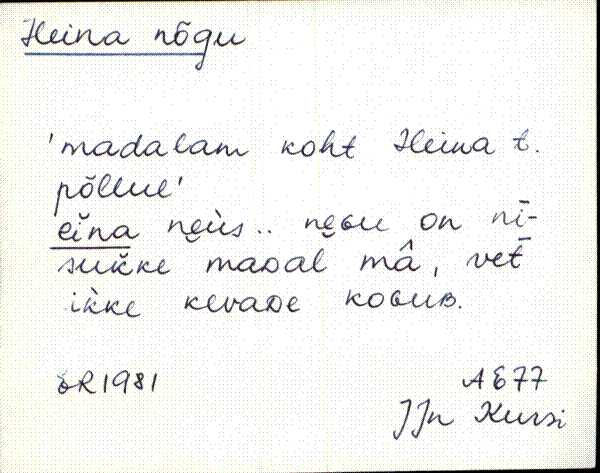 Heina nõgu
'madalam koht Heina t.
põllul'
eĭna nɛ̮ùs.. nɛ̮ɢu on nī-
sukke maᴅàl mâ, vet̄
ikke kevaᴅe koɢuʙ.
ER 1981 AE77
JJn Kursi